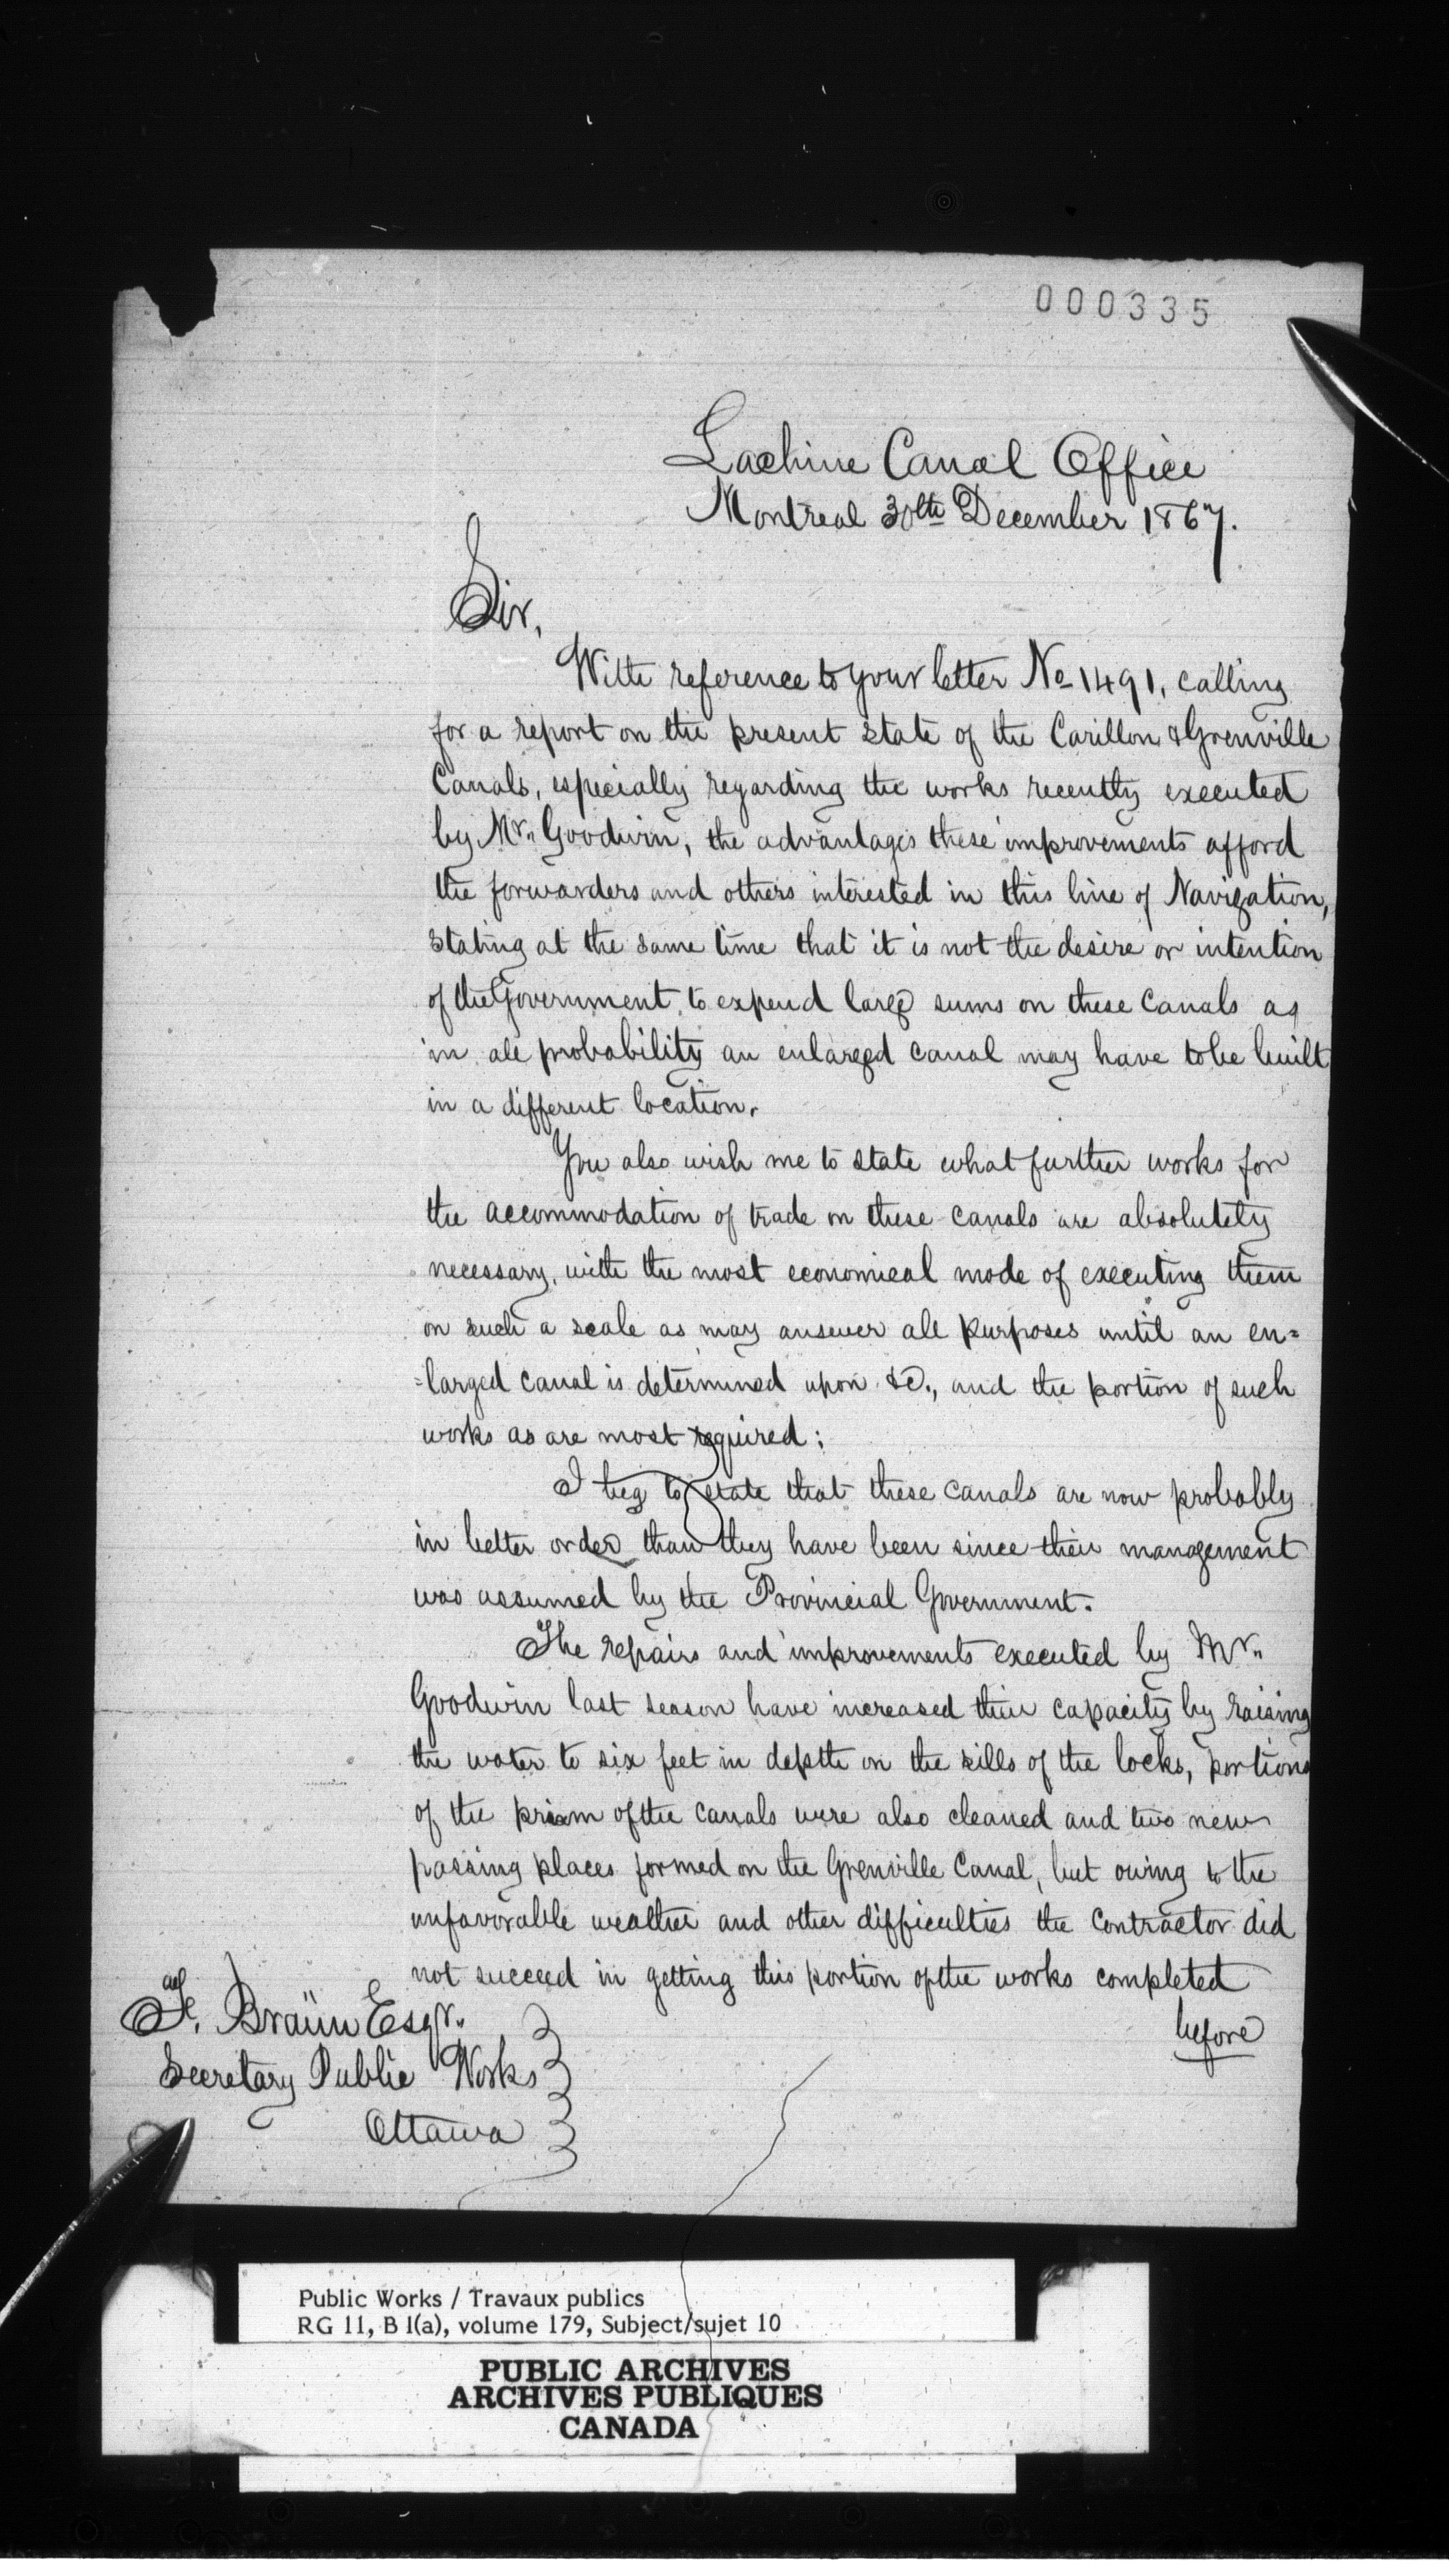 000335
Lachine Canal Office
Montreal 30th December 1867.
Sir,
With reference to your letter No 1491, calling
for a report on the present state of the Carillon & Grenville
Canals, especially regarding the works recently executed
by Mr. Goodwin, the advantages these improvements afford
the forwarders and others interested in this line of Navigation,
stating at the same time that it is not the desire or intention
of the Government to expend large sums on these Canals as
in all probability an enlarged canal may have to be built
in a different location.
You also wish me to state what further works for
the accommodation of trade on these canals are absolutely
necessary, with the most economical mode of executing them
on such a scale as may answer all purposes until an en=
=larged canal is determined upon &c., and the portion of such
works as are most required;
I beg to state that these canals are now probably
in better order than they have been since their management
was assumed by the Provincial Government.
The repairs and improvements executed by Mr.
Goodwin last season have increased their capacity by raising
the water to six feet in depth on the sills of the locks, portions
of the prism of the canals were also cleaned and two new
passing places formed on the Grenville Canal, but owing to the
unfavorable weather and other difficulties the Contractor did
not succeed in getting this portion of the works completed
before
F. Braün Esqr.
Secretary Public Works
Ottawa
Public Works / Travaux publics
RG 11, B 1(a), volume 179, Subject/sujet 10
PUBLIC ARCHIVES
ARCHIVES PUBLIQUES
CANADA